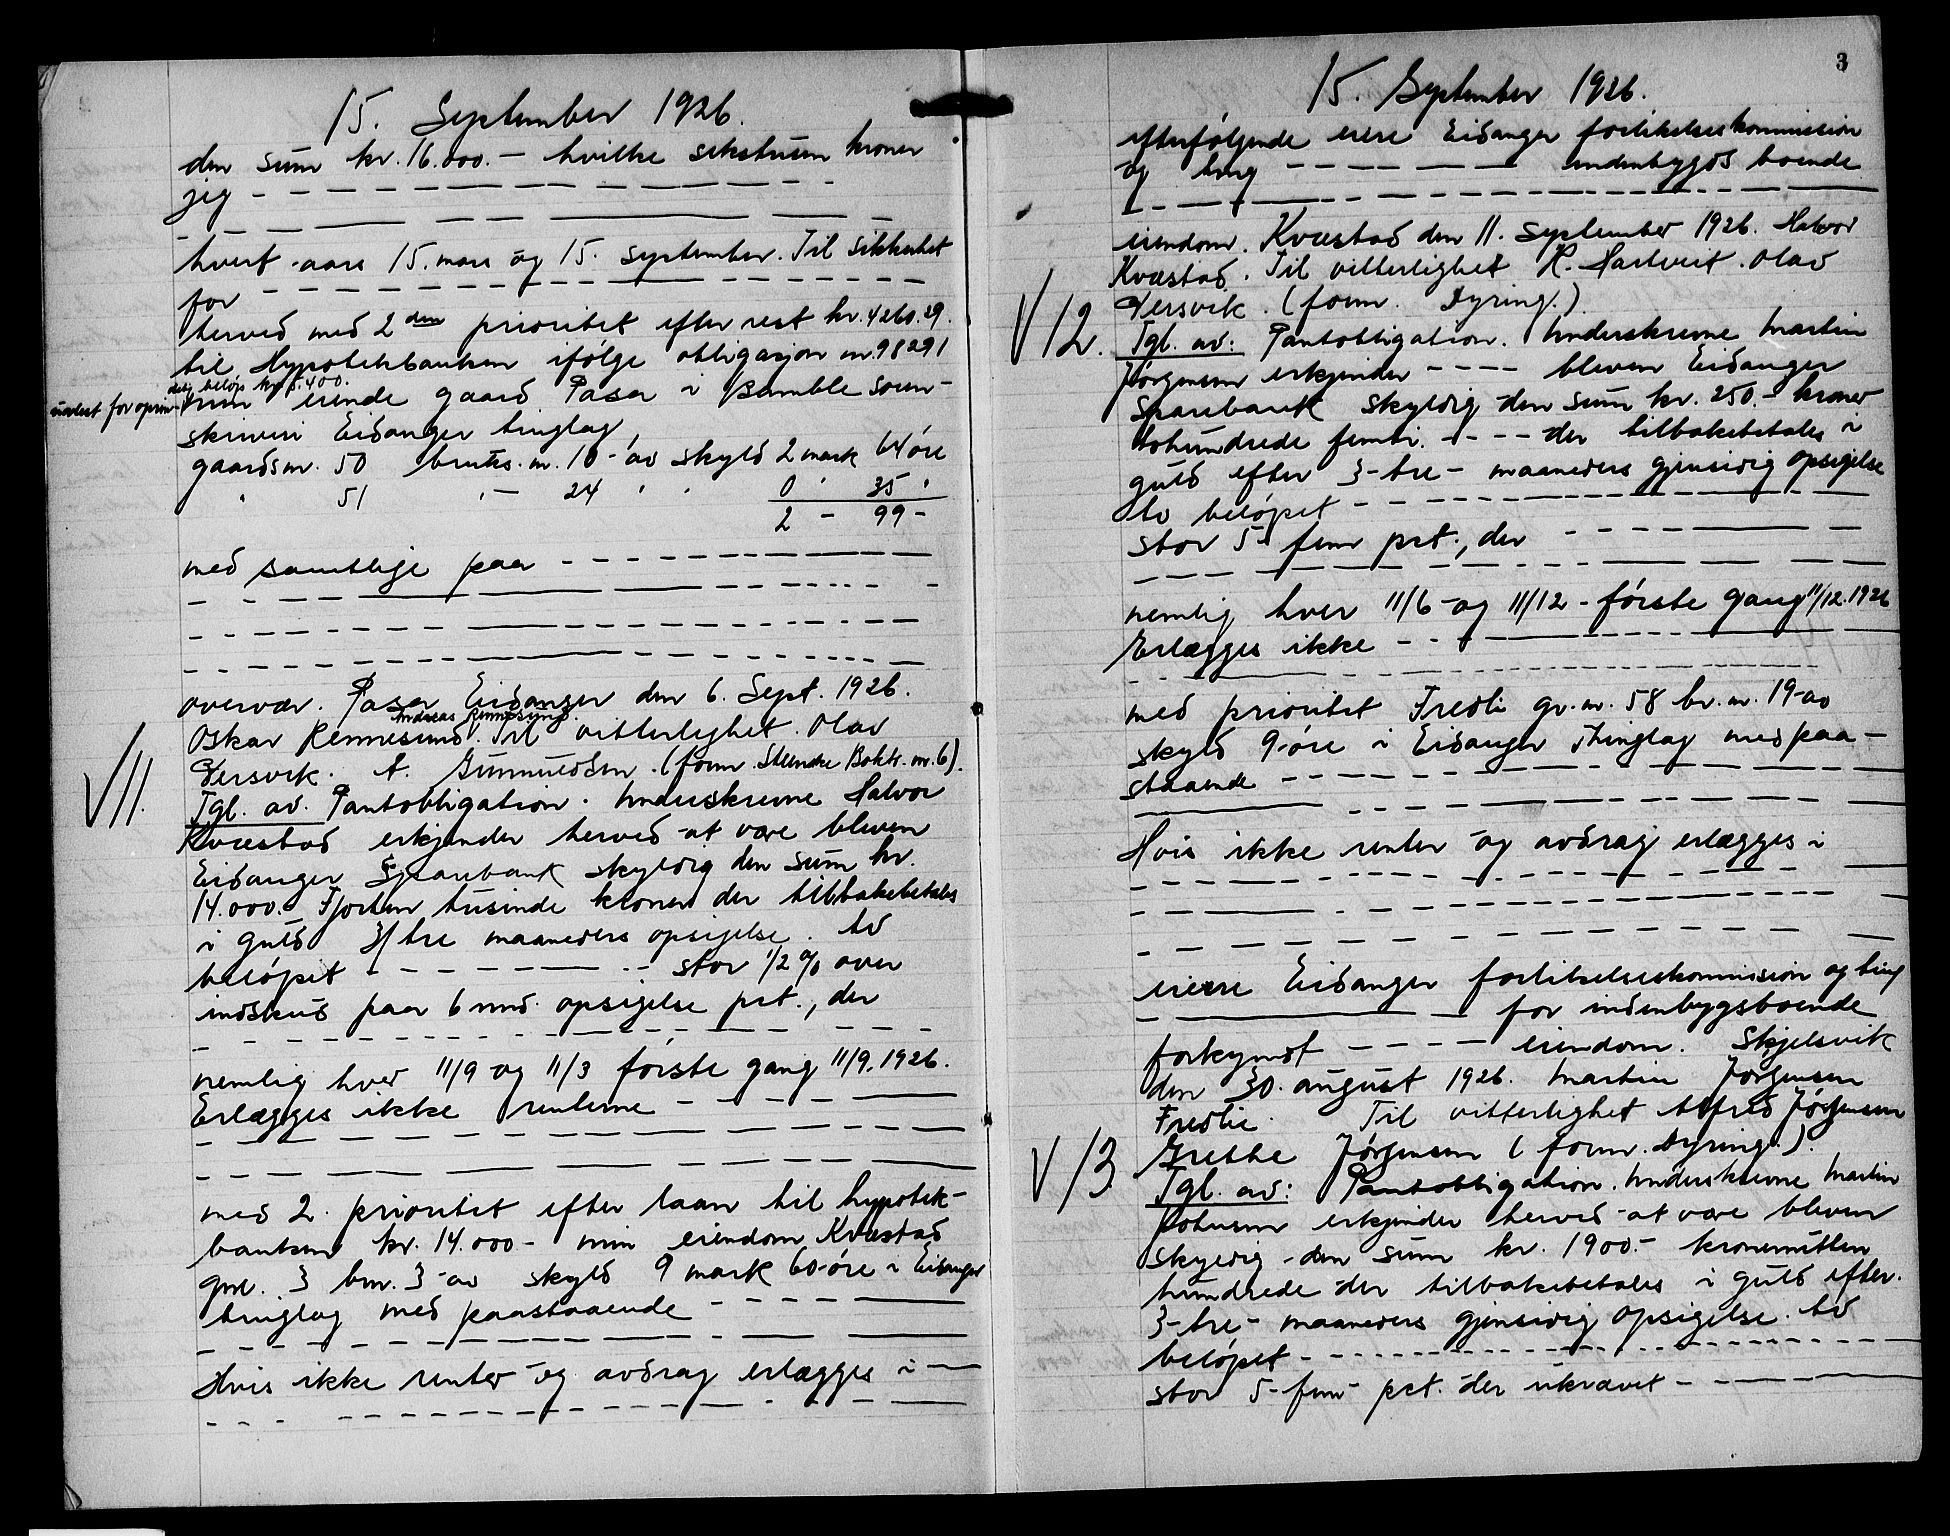 15. September 1926.
den sum kr. 16.000.- hvilke seksten kroner
jeg - - - - - - - - - -
hvert aars 15. mars og 15. september. Til sikkerhet
for - - - - - - - - - -
herved med 2den prioritet efter rest kr. 4260.29.
til Hypotekbanken ifölge obligasjon nr. 98291
delig belöp kr. 5.400.
utstedt for oprin-
min eiende gaard Paser i Bamble soren-
skriveri Eidanger tinglag,
gaardsnr. 50 bruks.nr. 10 - av skyld 2 mark 64 öre
" 51 " - 24 " " 0 " 35 "
2 - 99 -
med samtlige paa - - - - - - - - - -
overvær. Paser Eidanger den 6. Sept. 1926.
Andreas Rennesund.
Oskar Rennesund. Til vitterlighet. Olav
Versvik. A. Gunnuldsen. (form. Steenske Boktr. nr. 6).
V 11. Tgl. av. Pantobligation. Underskrevne Halvor
Kvæstad erkjender herved at være bleven
Eidanger Sparebank skyldig den sum kr.
14.000.- Fjorten tusinde kroner der tilbakebetales
i guld 3/ tre maaneders opsigelse. Av
belöpet - - - - - - - stor 1/2 % over
indskud paa 6 mnd. opsigelse pct., der
nemlig hver 11/9 og 11/3 förste gang 11/9. 1926.
Erlægges ikke renterne - - - - -
med 2. prioritet efter laan til hypotek-
banken kr. 14.000 - min eiendom Kvæstad
gnr. 3 bnr. 3 - av skyld 9 mark 60 öre i Eidanger
tinglag med paastaaende - - - - -
Hvis ikke renter og avdrag erlægges i -
3
15. September 1926.
efterfölgende eiere Eidanger forlikelseskommission
og ting - - - - - - - undenbygds boende
eiendom. Kvæstad den 11. September 1926. Halvor
Kvæstad. Til vitterlighet H. Hartveit. Olav
Versvik. (form. Dyring.)
V 12. Tgl. av: Pantobligation. Underskrevne Martin
Jörgensen erkjender - - - - bleven Eidanger
Sparebank skyldig den sum kr. 250.- kroner
tohundrede femti. - - - - der tilbakebetales i
guld efter 3 - tre - maaneders gjensidig opsigelse
Av belöpet - - - - - - - - - -
stor 5 - fem pct., der - - - - - - -
nemlig hver 11/6 - og 11/12 - förste gang 11/12. 1926
Erlægges ikke - - - - - - - - -
med prioritet Fredli gr. nr. 58 br. nr. 19 - av
skyld 9 - öre i Eidanger Thinglag med paa-
staaende - - - - - - - - - -
Hvis ikke renter og avdrag erlægges i
eiere Eidanger forlikelseskommission og ting
- - - - - - - for indenbygsboende
forkyndt - - - - - eiendom. Skjelsvik
den 30. august 1926. Martin Jörgensen
Fredlie. Til vitterlighet Alfred Jörgensen
Grethe Jörgensen (form. Dyring.).
V 13 Tgl. av: Pantobligation. Underskrevne Martin
Johnsen erkjender herved at være bleven
skyldig den sum kr. 1900.- kroner nitten
hundrede der tilbakebetales i guld efter.
3 - tre - maaneders gjensidig opsigelse. Av
belöpet - - - - - - - - - -
stor 5 - fem - pct. der ukrævet - - - - -